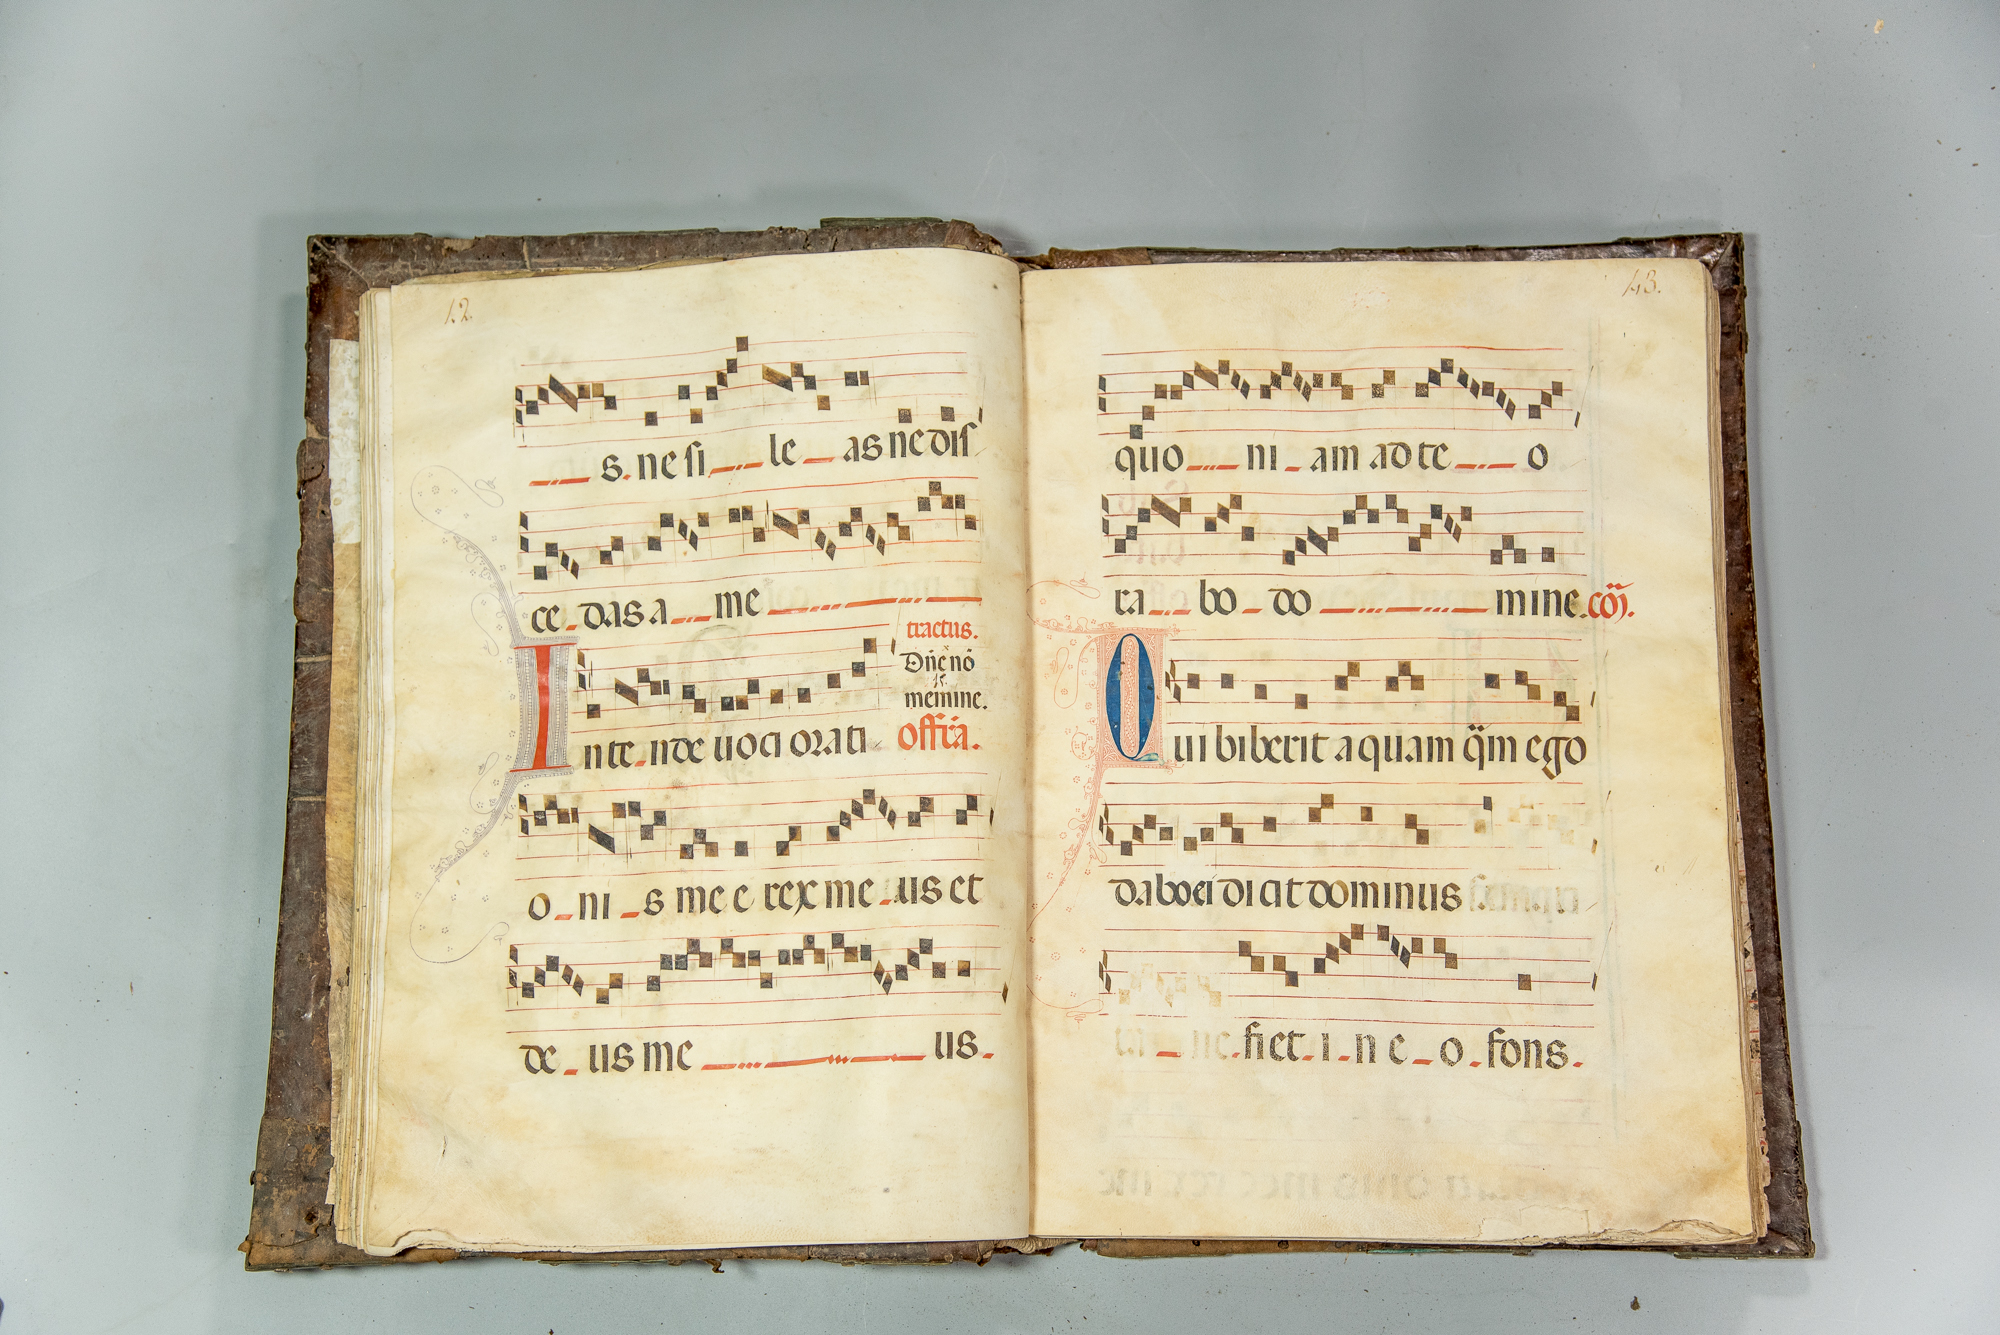 12.
s. ne si le as ne dis
ce das a me
tractus.
Dñe nō
15.
memine.
Inte nde uoci orati
offr̄a.
o ni s me e rex me us et
de us me us.
43.
quo ni am ad te o
ra bo do mine. cōɱ.
Qui biberit aquam q̄m ego
dabo ei dicit dominus
fiet. i. n e. o. fons.